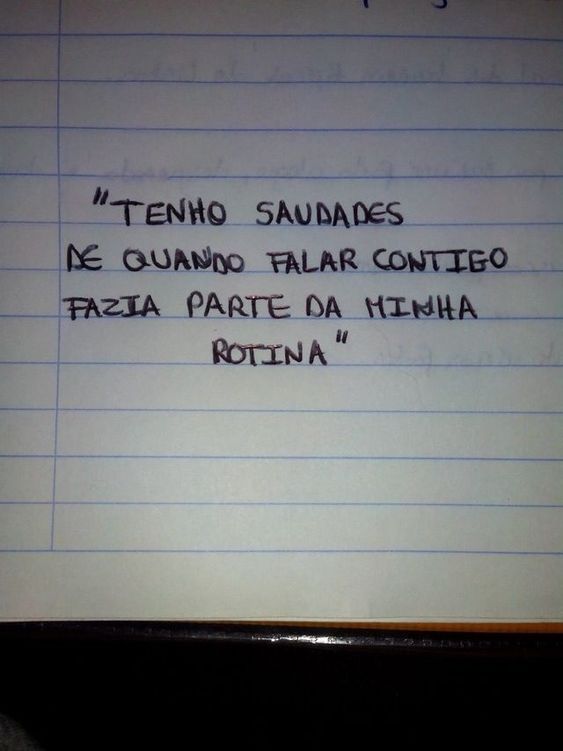 "TENHO SAUDADES
DE QUANDO FALAR CONTIGO
FAZIA PARTE DA MINHA
ROTINA"